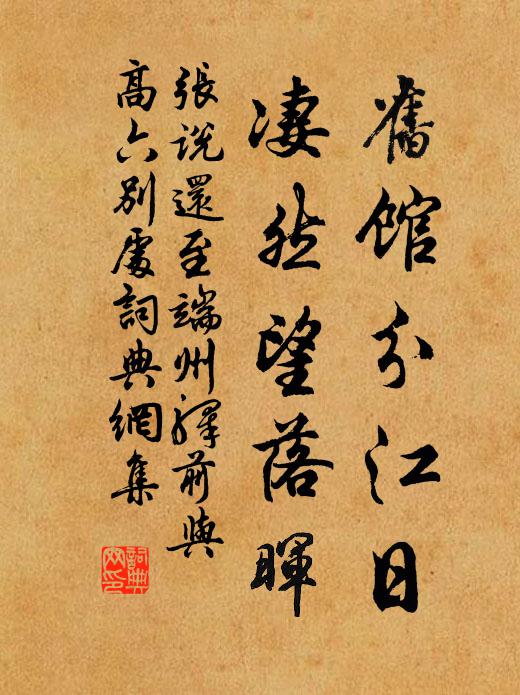 舊館分江日
凄然望落暉
張說還至端州驛前與
高六別處詞典網集
詞典網印